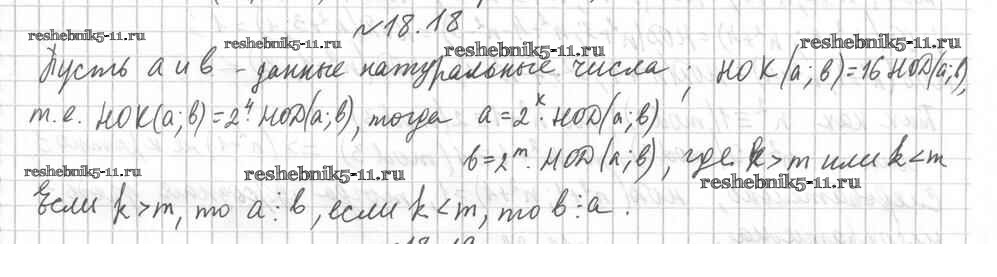 №18.18
reshebnik5-11.ru reshebnik5-11.ru reshebnik5-11.ru reshebnik5-11.ru
Пусть a и b - данные натуральные числа; НОК(a;b)=16 НОД(a;b),
т.е. НОК(a;b)=2⁴·НОД(a;b), тогда a=2ᵏ·НОД(a;b)
b=2ᵐ·НОД(a;b), где k>m или k<m
reshebnik5-11.ru reshebnik5-11.ru reshebnik5-11.ru
Если k>m, то a⋮b, если k<m, то b⋮a.